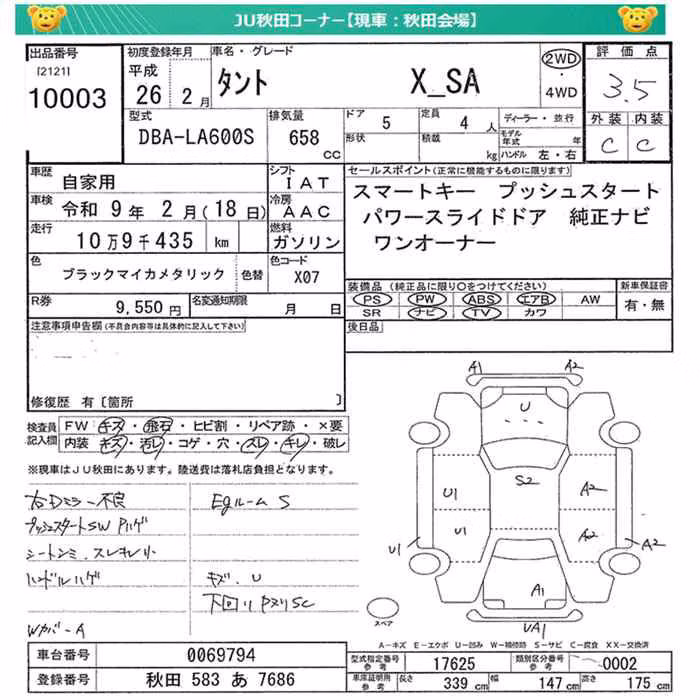 JU秋田コーナー【現車：秋田会場】
出品番号
[2121]
10003
初度登録年月
平成
26年 2月
車名・グレード
タント X_SA
2WD
・
4WD
評価点
3.5
外装 内装
C C
型式
DBA-LA600S
排気量
658
CC
ドア 5
形状
定員 4 人
積載 kg
ディーラー・並行
モデル年式 年
ハンドル 左・右
車歴 自家用
シフト IAT
車検 令和 9年 2月(18日)
冷房 AAC
走行 10万9千435 km
燃料 ガソリン
色 ブラックマイカメタリック 色替
色コード X07
R券 9,550円
名変通知期限 月 日
セールスポイント(正常に機能するものに限ります)
スマートキー プッシュスタート
パワースライドドア 純正ナビ
ワンオーナー
装備品(純正品に限り○をつけてください)
PS PW ABS エアB AW
SR ナビ TV カワ
新車保証書
有・無
後日品
注意事項申告欄(不具合内容等は具体的に記入して下さい)
修復歴 有〔箇所 〕
検査員記入欄
FW キズ・飛石・ヒビ割・リペア跡・×要
内装 キズ・汚レ・コゲ・穴・スレ・キレ・破レ
※現車はJU秋田にあります。陸送費は落札店負担となります。
右Dミラー不良
EgルームS
プッシュスタートSWハゲ
シートシミ、スレキレ
ハンドルハゲ
キズ・U
下回り
Wカバー A
A1 A2
U
S2
U1 A2
U1 A2
U1 A2
A1
UA1
スペア
A-キズ E-エクボ U-凹み W-補修跡 S-サビ C-腐食 XX-交換済
車台番号 0069794
登録番号 秋田 583 あ 7686
型式指定番号 参考 17625
類別区分番号 参考 0002
車庫証明用 参考 長さ 339cm 幅 147cm 高さ 175cm